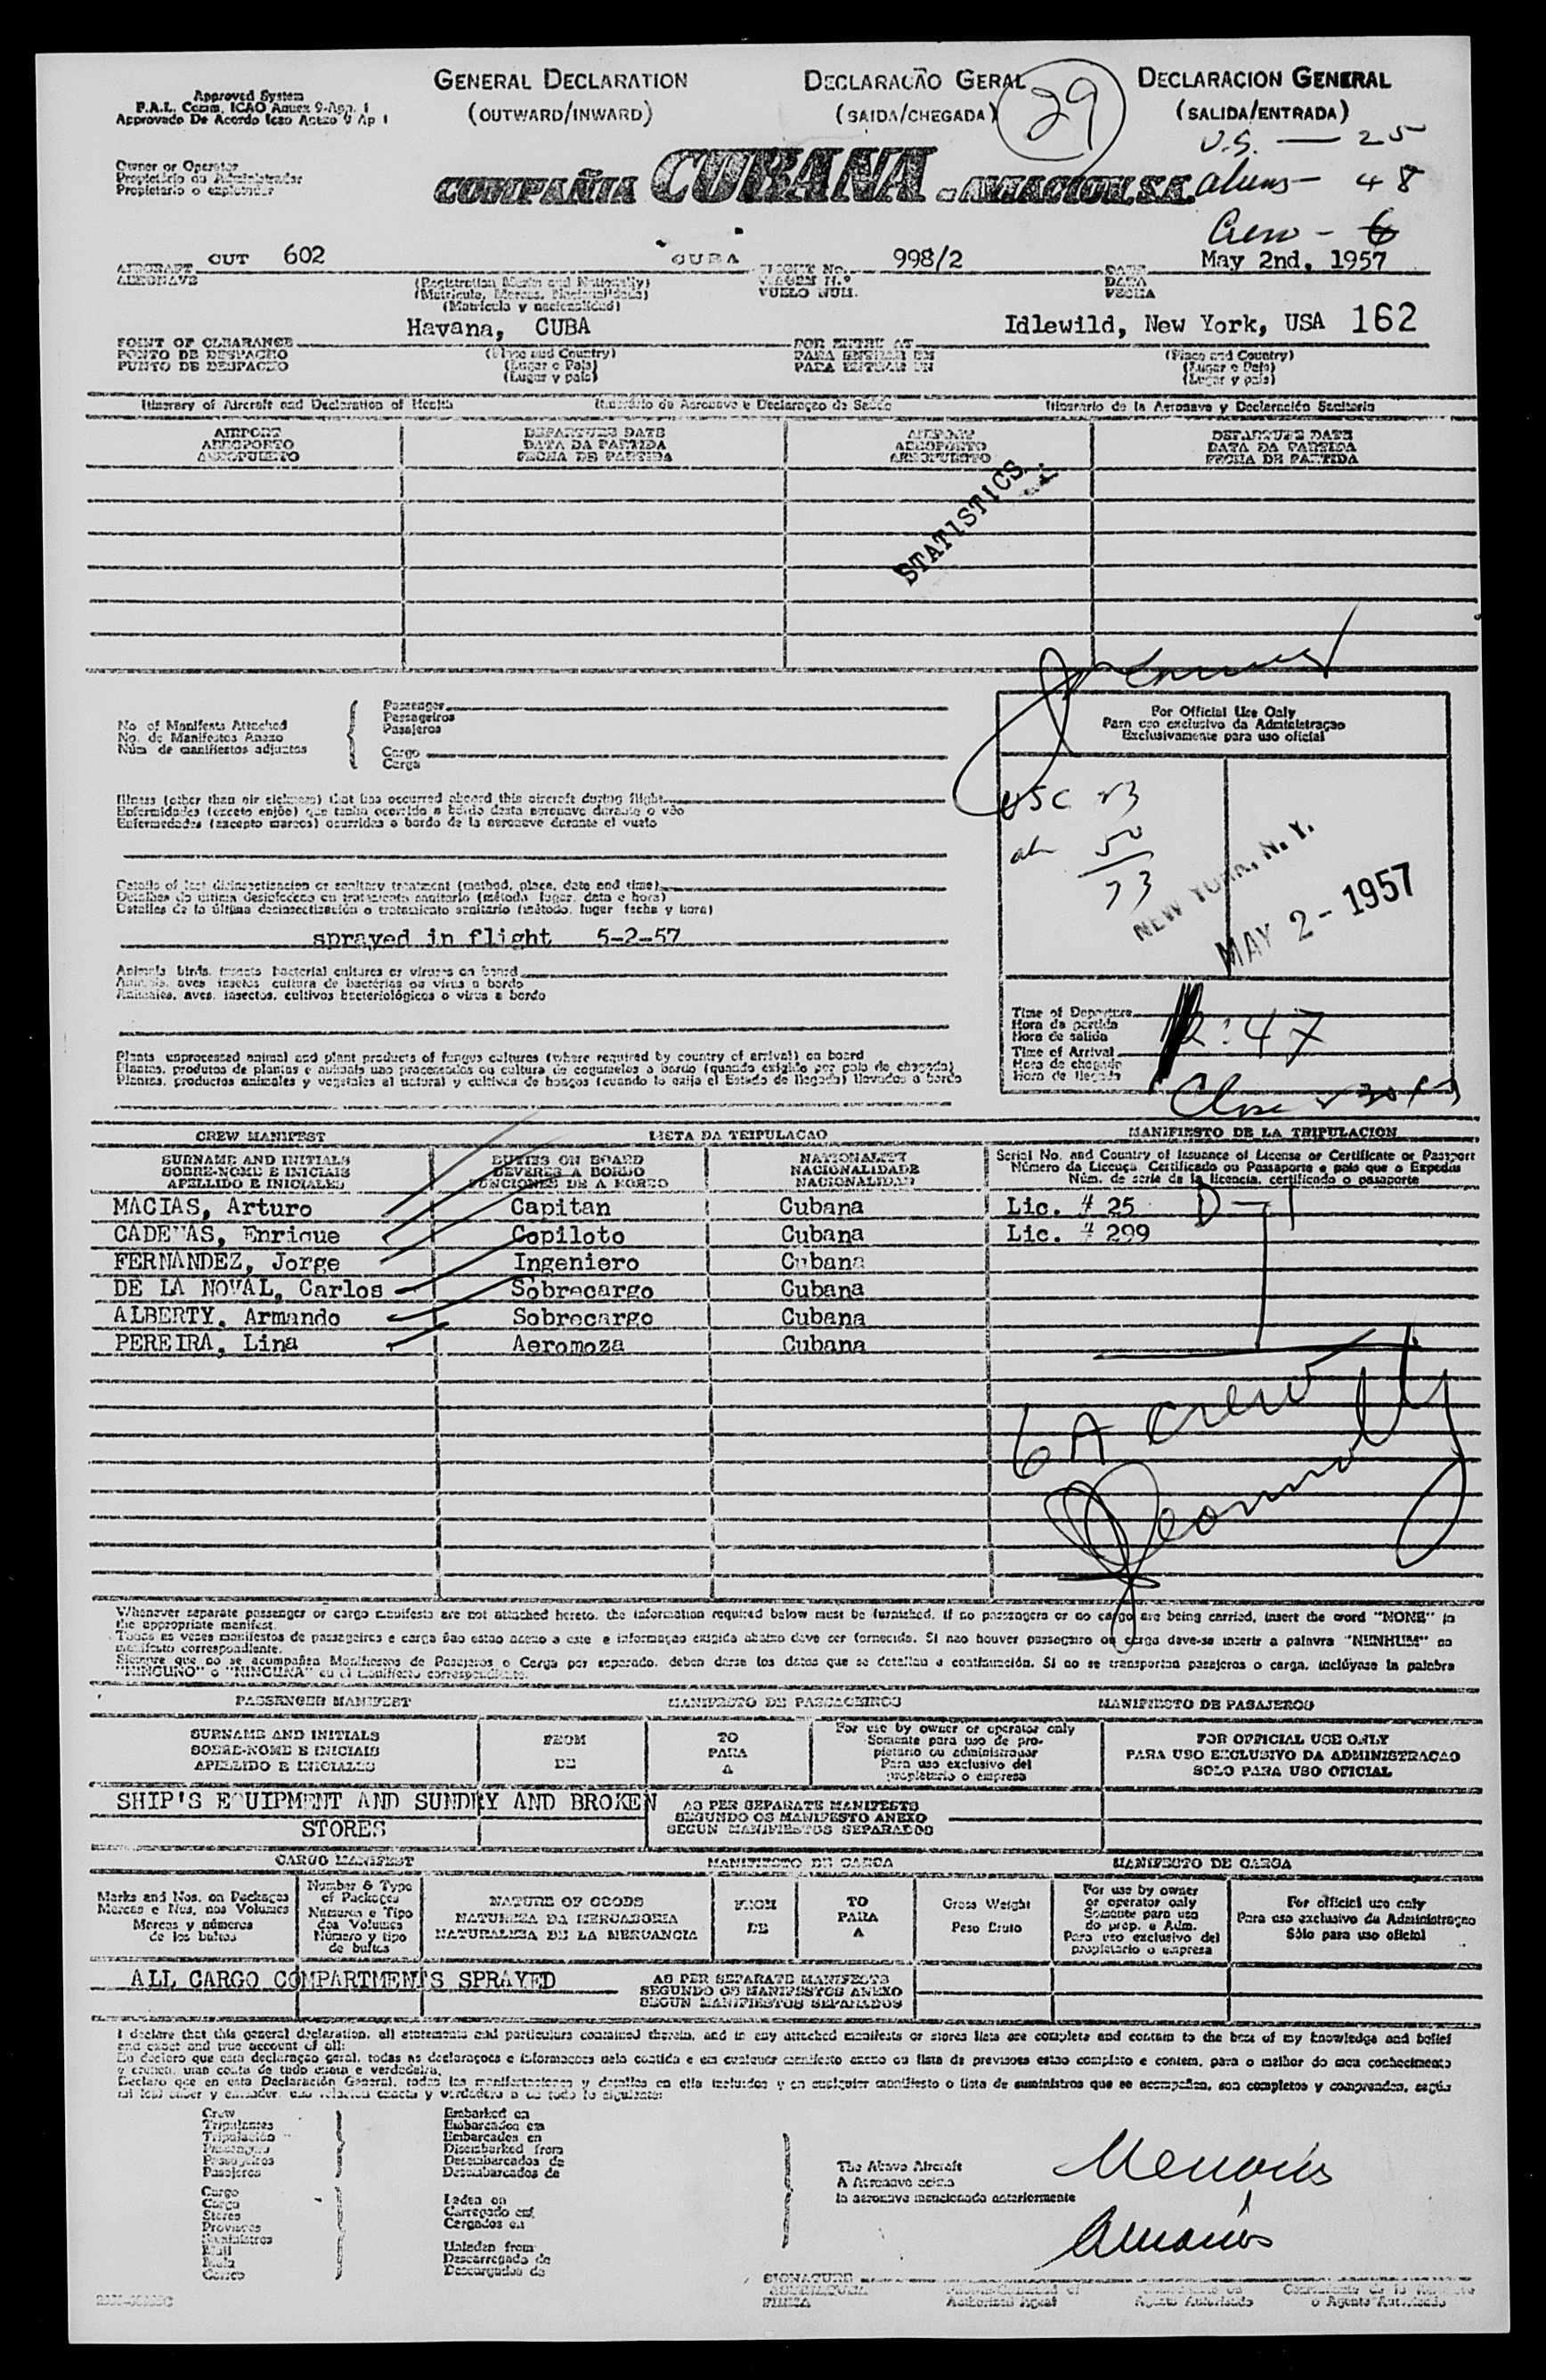 GENERAL DECLARATION
(OUTWARD/INWARD)
DECLARAÇÃO GERAL
(SAIDA/CHEGADA)
29
DECLARACION GENERAL
(SALIDA/ENTRADA)
Approved System
P.A.L. Comm. ICAO Annex 9-App. 1
Approvado De Acordo Icao Anexo 9 Ap 1
U.S. — 25
Owner or Operator
Propietário ou Administrador
Propietario o explotador
COMPAÑIA CUBANA DE AVIACION, S.A.
aliens - 48
Crew - 6
AIRCRAFT CUT 602 CUBA FLIGHT No. 998/2 DATE May 2nd, 1957
AERONAVE (Registration Marks and Nationality) VIAGEM N.º DATA
(Matricula, Marcas, Nacionalidade) VUELO NUM. FECHA
(Matricula y nacionalidad)
POINT OF CLEARANCE Havana, CUBA FOR ENTRY AT Idlewild, New York, USA 162
PONTO DE DESPACHO (Place and Country) PARA ENTRAR EM (Place and Country)
PUNTO DE DESPACHO (Lugar e Pais) PARA ENTRAR EN (Lugar e Pais)
(Lugar y pais) (Lugar y pais)
Itinerary of Aircraft and Declaration of Health Itinerário da Aeronave e Declaraçao de Saúde Itinerario de la Aeronave y Declaración Sanitaria
AIRPORT DEPARTURE DATE AIRPORT DEPARTURE DATE
AEROPORTO DATA DA PARTIDA AEROPORTO DATA DA PARTIDA
AEROPUERTO FECHA DE PARTIDA AEROPUERTO FECHA DE PARTIDA
STATISTICS
No. of Manifests Attached
No. de Manifestos Anexo
Núm. de manifiestos adjuntos
Passenger
Passageiros
Pasajeros
Cargo
Carga
For Official Use Only
Para uso exclusivo da Administraçao
Exclusivamente para uso oficial
USC 23
al 50
73
NEW YORK, N. Y.
MAY 2 - 1957
Illness (other than air sickness) that has occurred aboard this aircraft during flight
Enfermidades (exceto enjôo) que tenha ocorrido a bordo desta aeronave durante o vôo
Enfermedades (excepto mareos) ocurridas a bordo de la aeronave durante el vuelo
Details of last disinsectisation or sanitary treatment (method, place, date and time)
Detalhes da ultima desinfeccao ou tratamento sanitario (método lugar, data e hora)
Detalles de la última desinsectización o tratamiento sanitario (método, lugar fecha y hora)
sprayed in flight 5-2-57
Animals birds, insects bacterial cultures or viruses on board
Animais, aves insetos cultura de bactérias ou virus a bordo
Animales, aves, insectos, cultivos bacteriológicos o virus a bordo
Time of Departure
Hora da partida
Hora de salida
Time of Arrival
Hora de chegada
Hora de llegada
2:47
Plants unprocessed animal and plant products of fungus cultures (where required by country of arrival) on board
Plantas, produtos de plantas e animais nao processados ou cultura de cogumelos a bordo (quando exigido por pais de chegada)
Plantas, productos animales y vegetales al natural y cultivos de hongos (cuando lo exija el Estado de llegada) llevados a bordo
CREW MANIFEST LISTA DA TRIPULACAO MANIFIESTO DE LA TRIPULACION
SURNAME AND INITIALS DUTIES ON BOARD NATIONALITY Serial No. and Country of Issuance of License or Certificate or Passport
SOBRE-NOME E INICIAIS DEVERES A BORDO NACIONALIDADE Número da Licença, Certificado ou Passaporte e pais que o Expediu
APELLIDO E INICIALES FUNCIONES DE A BORDO NACIONALIDAD Núm. de serie de la licencia, certificado o pasaporte
MACIAS, Arturo Capitan Cubana Lic. # 25
CADENAS, Enrique Copiloto Cubana Lic. # 299
FERNANDEZ, Jorge Ingeniero Cubana
DE LA NOVAL, Carlos Sobrecargo Cubana
ALBERTY, Armando Sobrecargo Cubana
PEREIRA, Lina Aeromoza Cubana
D-1
6 A crew
Whenever separate passenger or cargo manifests are not attached hereto, the information required below must be furnished. If no passengers or no cargo are being carried, insert the word "NONE" in
the appropriate manifest.
Todas as veses manifestos de passageiros e carga nao estao anexo a este a informaçao exigida abaixo deve ser fornecida. Si nao houver passageiro ou carga deve-se inserir a palavra "NENHUM" no
manifesto correspondiente.
Siempre que no se acompañen Manifiestos de Pasajeros o Carga por separado, deben darse los datos que se detallan a continuación. Si no se transportan pasajeros o carga, inclúyase la palabra
"NINGUNO" o "NINGUNA" en el manifiesto correspondiente.
PASSENGER MANIFEST MANIFESTO DE PASSAGEIROS MANIFIESTO DE PASAJEROS
SURNAME AND INITIALS FROM TO For use by owner or operator only FOR OFFICIAL USE ONLY
SOBRE-NOME E INICIAIS DE PARA Somente para uso de pro- PARA USO EXCLUSIVO DA ADMINISTRACAO
APELLIDO E INICIALES A prietario ou administrador SOLO PARA USO OFICIAL
Para uso exclusivo del
propietario o empresa
SHIP'S EQUIPMENT AND SUNDRY AND BROKEN
STORES
AS PER SEPARATE MANIFESTS
SEGUNDO OS MANIFESTO ANEXO
SEGUN MANIFIESTOS SEPARADOS
CARGO MANIFEST MANIFIESTO DE CARGA MANIFESTO DE CARGA
Marks and Nos. on Packages
Marcas e Nus. nos Volumes
Marcas y números
de los bultos
Number & Type
of Packages
Numeros e Tipo
dos Volumes
Número y tipo
de bultos
NATURE OF GOODS
NATUREZA DA MERCADORIA
NATURALEZA DE LA MERCANCIA
FROM
DE
TO
PARA
A
Gross Weight
Peso Bruto
For use by owner
or operator only
Somente para uso
do prop. e Adm.
Para uso exclusivo del
propietario o empresa
For official use only
Para uso exclusivo da Administraçao
Sólo para uso oficial
ALL CARGO COMPARTMENTS SPRAYED
AS PER SEPARATE MANIFESTS
SEGUNDO OS MANIFESTOS ANEXO
SEGUN MANIFIESTOS SEPARADOS
I declare that this general declaration, all statements and particulars contained therein, and in any attached manifests or stores lists are complete and contain to the best of my knowledge and belief
and exact and true account of all:
Eu declaro que esta declaraçao geral, todas as declaraçoes e informacoes nela contida e em cualquer manifesto anexo ou lista de previsoes estao completo e contem, para o melhor do meu conhecimento
y crencia, uma conta de tudo exata e verdadeira.
Declaro que en esta Declaración General, todas las manifestaciones y detalles en ella incluidos y en cualquier manifiesto o lista de suministros que se acompañan, son completos y comprenden, según
mi leal saber y entender, una relación exacta y verdadera a de todo lo siguiente:
Crew
Tripulantes
Tripulación
Passengers
Passageiros
Pasajeros
Embarked on
Embarcados em
Embarcados en
Disembarked from
Desembarcados de
Desembarcados de
Cargo
Carga
Stores
Provisoes
Suministros
Mail
Mala
Correo
Laden on
Carregado em
Cargados en
Unladen from
Descarregado de
Descargados de
The Above Aircraft
A Aeronave acima
la aeronave mencionada anteriormente
SIGNATURE
FIRMA
Authorized Agent